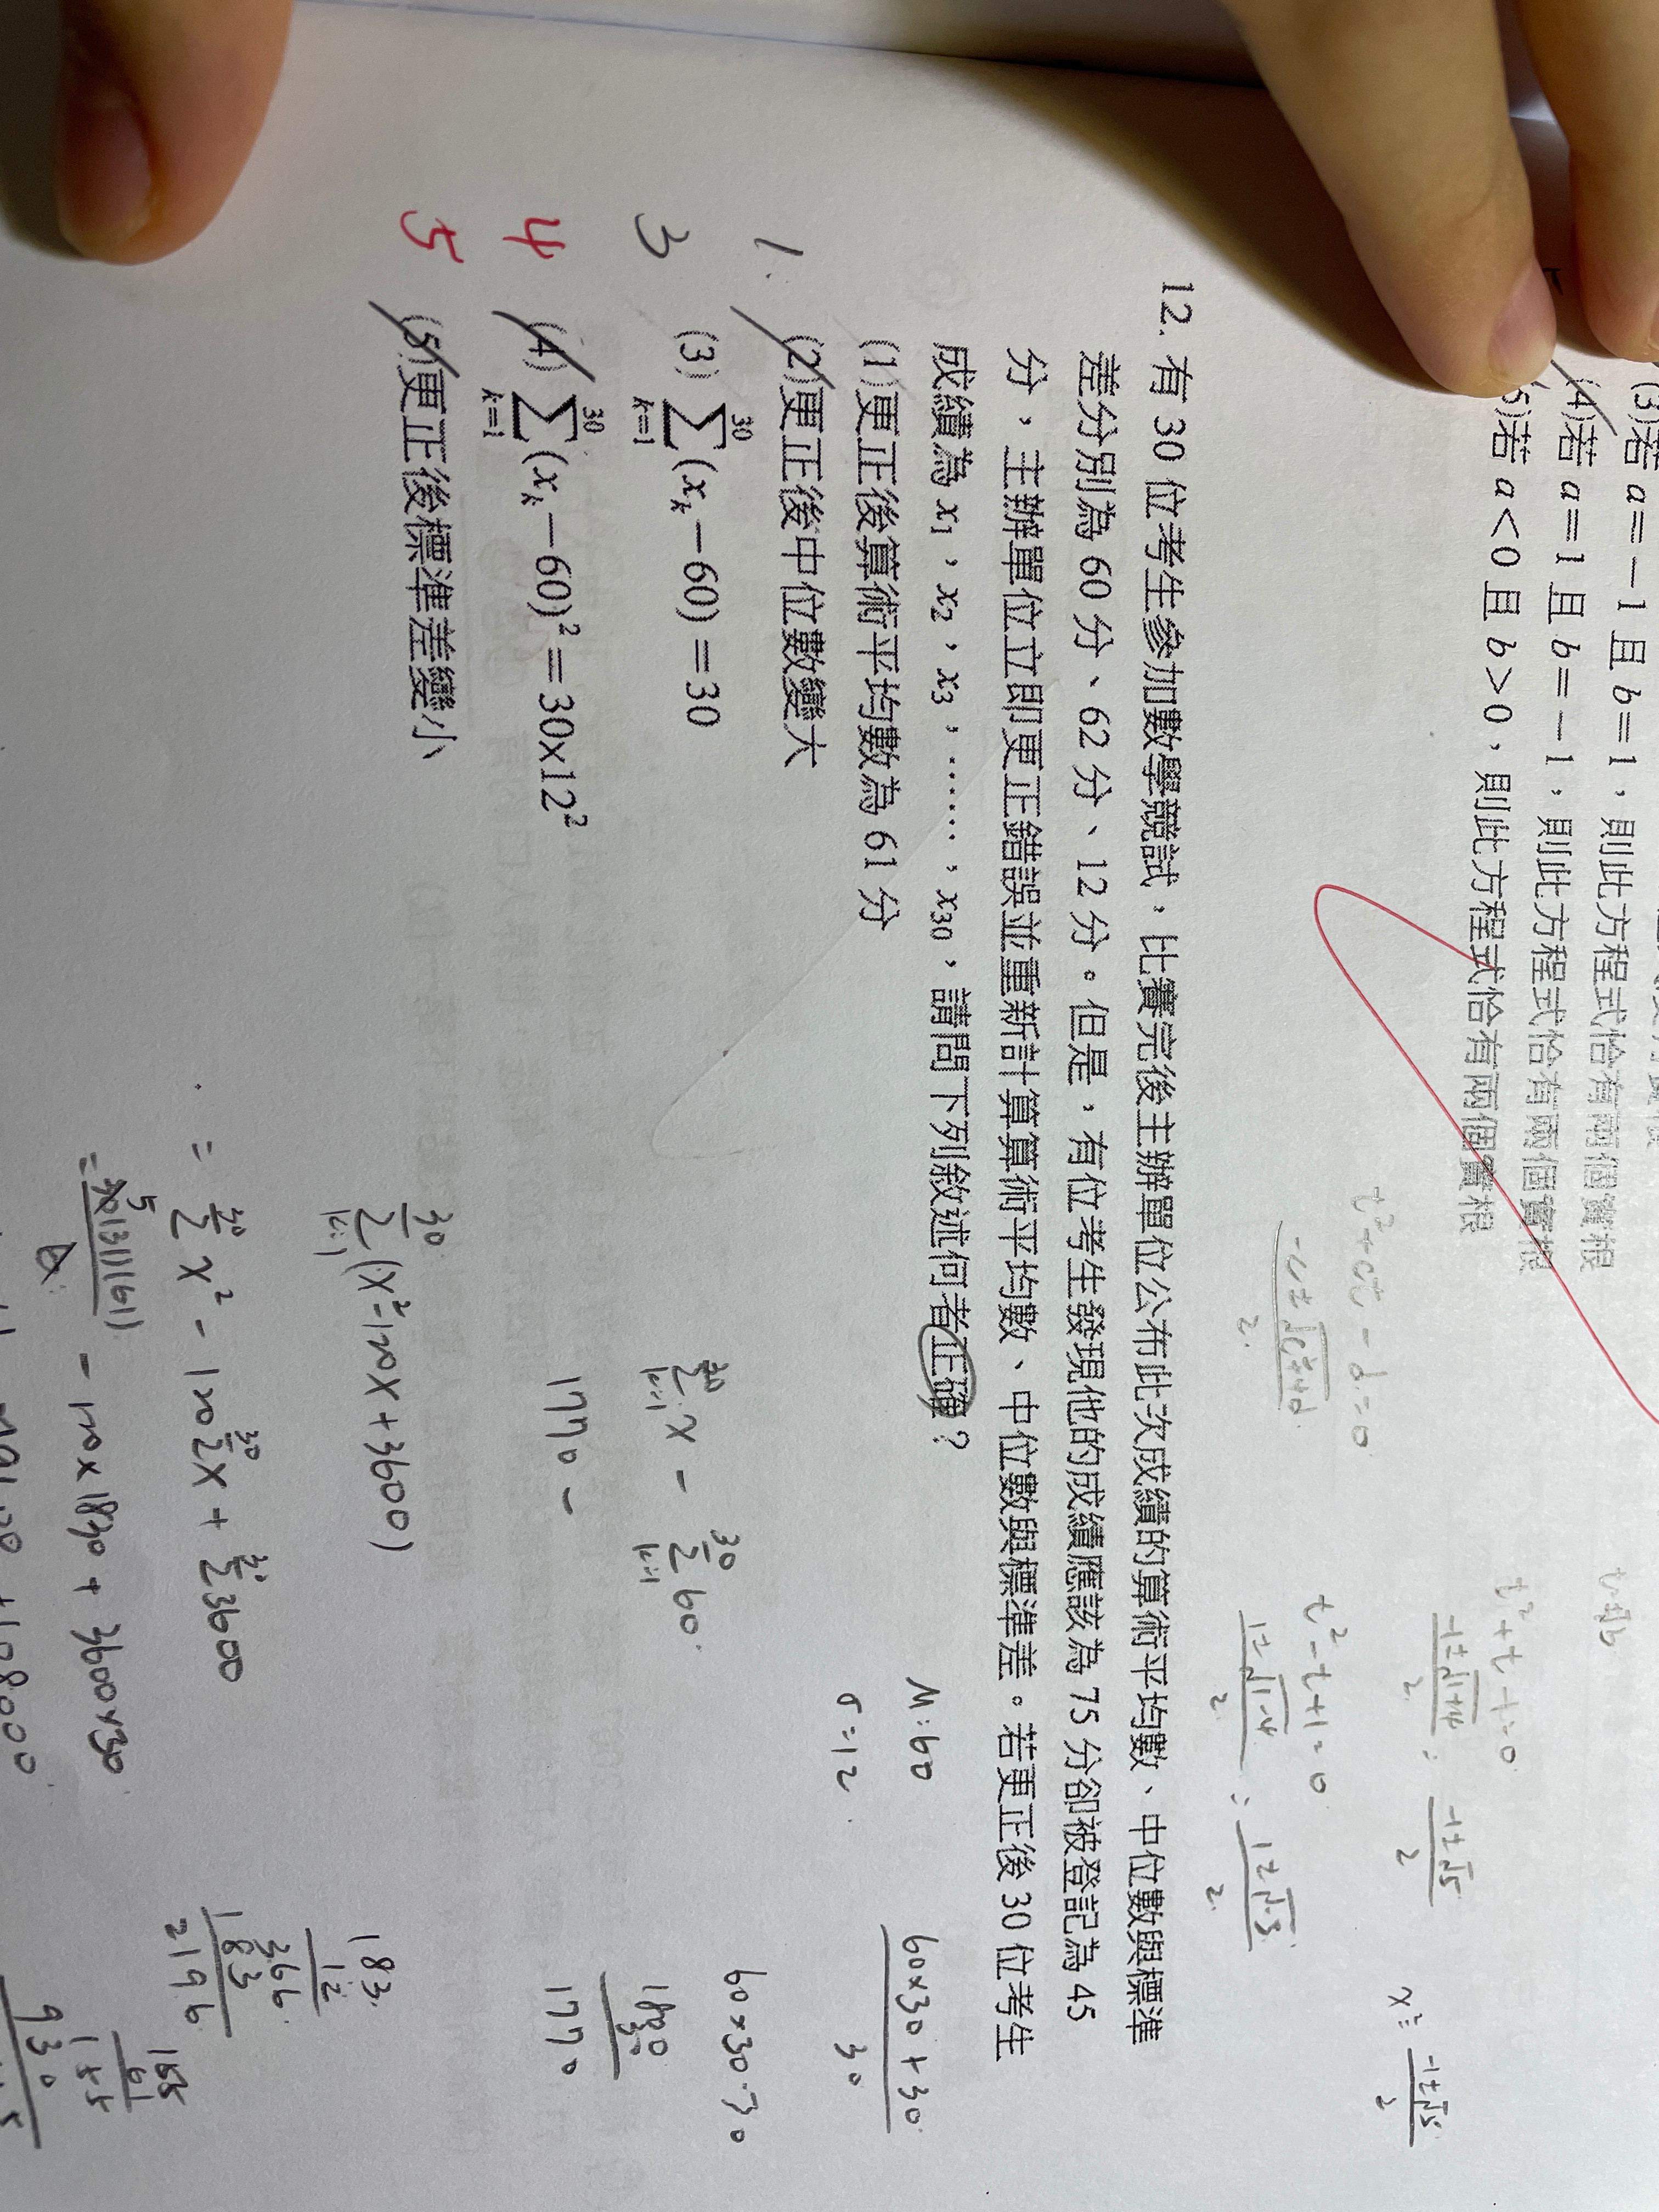 (3)若 a=－1 且 b=1，則此方程式恰有兩個實根
(4)若 a=1 且 b=－1，則此方程式恰有兩個實根
(5)若 a<0 且 b>0，則此方程式恰有兩個實根
12. 有 30 位考生參加數學競試，比賽完後主辦單位公布此次成績的算術平均數、中位數與標準
差分別為 60 分、62 分、12 分。但是，有位考生發現他的成績應該為 75 分卻被登記為 45
分，主辦單位立即更正錯誤並重新計算算術平均數、中位數與標準差。若更正後 30 位考生
成績為 x₁，x₂，x₃，……，x₃₀，請問下列敘述何者正確？
(1)更正後算術平均數為 61 分
(2)更正後中位數變大
(3) ∑_{k=1}^{30} (xₖ－60)=30
(4) ∑_{k=1}^{30} (xₖ－60)²=30×12²
(5)更正後標準差變小
1.
3
4
5
t²+at－b=0
t²+t－1=0
t²－t+1=0
M=60
σ=12
60×30+30
30
∑_{k=1}^{30} x － ∑_{k=1}^{30} 60
60×30-30
1770 －
1770
∑_{k=1}^{30} (x²－120x+3600)
－ 120×1830 + 3600×30
183
12
366
183
2196